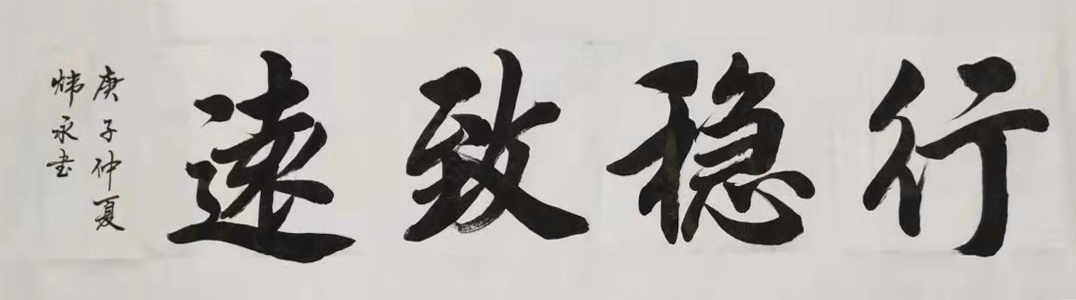 行稳致遠
庚子仲夏
炜永书